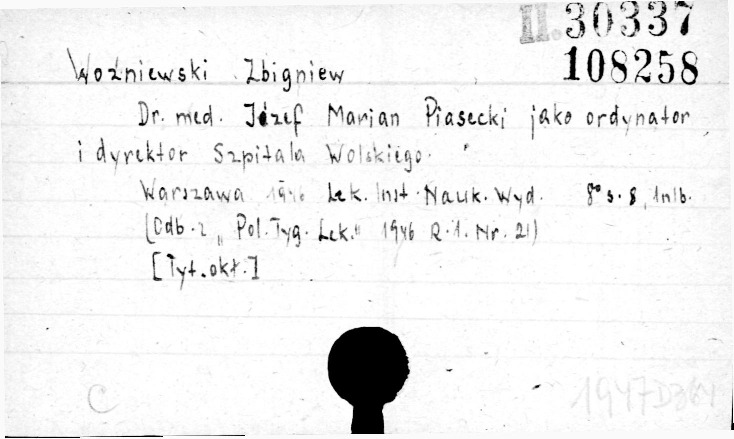 II. 30337
108258
Woźniewski Zbigniew
Dr. med. Józef Marian Piasecki jako ordynator
i dyrektor Szpitala Wolskiego.
Warszawa 1946 Lek. Inst. Nauk. Wyd. 8° s. 8, 1nlb.
(Odb. z "Pol. Tyg. Lek." 1946 R. 1. Nr. 21)
[Tyt. okł.]
C